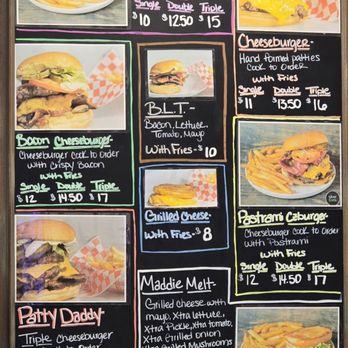 Single Double Triple
$10 $12.50 $15
Cheeseburger-
Hand formed patties
Cook to Order
With Fries
Single Double Triple
$11 $13.50 $16
B.L.T.-
Bacon, Lettuce
Tomato, Mayo
With Fries- $10
Bacon Cheeseburger-
Cheeseburger Cook to Order
with Crispy Bacon
With Fries
Single Double Triple
$12 $14.50 $17
Grilled Cheese-
With Fries- $8
Pastrami Czburger-
Cheeseburger Cook to Order
with Pastrami
With Fries
Single Double Triple
$12 $14.50 $17
Patty Daddy-
Triple Cheeseburger
to Order
Maddie Melt-
Grilled Cheese with
mayo, Xtra lettuce,
Xtra Pickle, Xtra tomato,
Xtra Grilled onion
Xtra Grilled Mushrooms